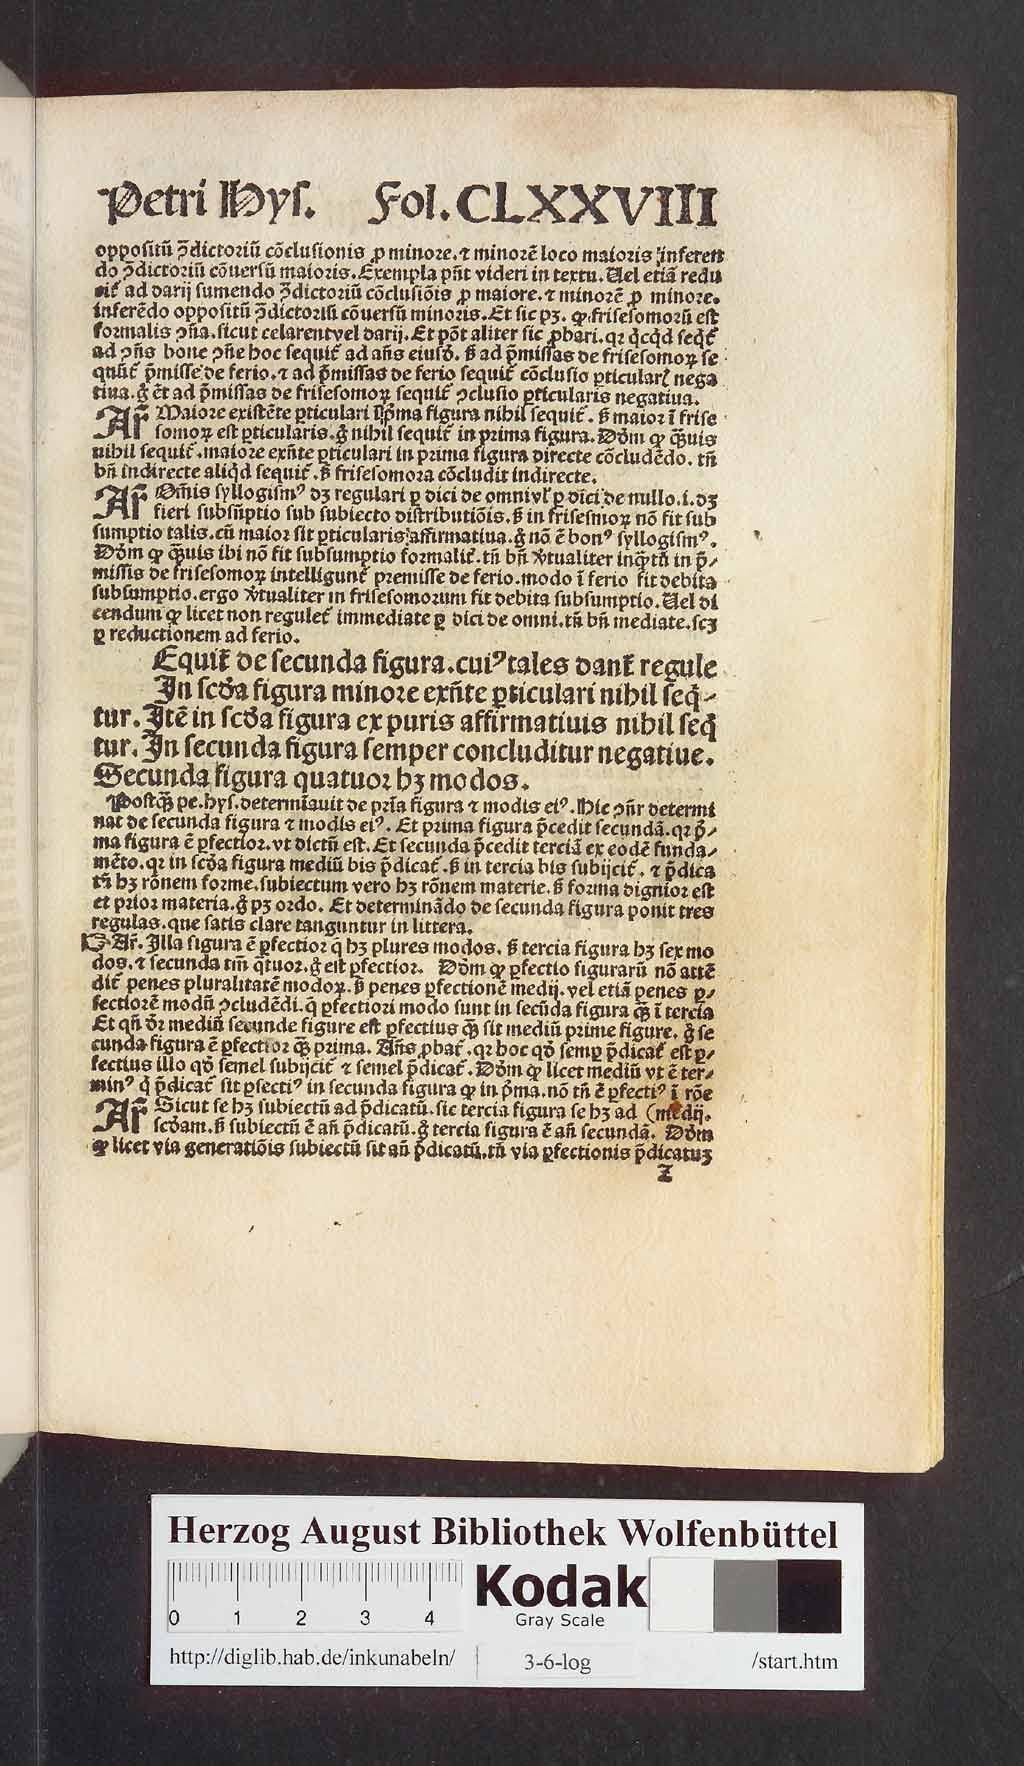 Petri Hys. Fol. CLXXVIII
oppositū ꝯ̄dictoriū cōclusionis ꝓ minore. ⁊ minorē loco maioris inferen
do ꝯ̄dictoriū cōuersū maioris. Exempla pn̄t videri in textu. Uel etiā redu
cit᷑ ad darij sumendo ꝯ̄dictoriū cōclusiōis ꝓ maiore. ⁊ minorē ꝓ minore.
inferēdo oppositū ꝯ̄dictoriū cōuersū minoris. Et sic pꝫ. ꝙ frisesomorū est
formalis ꝯn̄a. sicut celarent vel darij. Et pōt aliter sic ꝓbari. qꝛ q̇cq̇d seqt᷑
ad ꝯn̄s bone ꝯn̄e hoc sequit᷑ ad an̄s eiusdē. s̄ ad p̄missas de frisesomoꝝ se
quūt᷑ p̄misse de ferio. ⁊ ad p̄missas de ferio sequit᷑ cōclusio ꝑticularꝭ nega
tiua. g̊ ēt ad p̄missas de frisesomoꝝ sequit᷑ ꝯclusio ꝑticularis negatiua.
Ar̄ Maiore existēte ꝑticulari ī p̄ma figura nihil sequit᷑. s̄ maior ī frise
somoꝝ est ꝑticularis. g̊ nihil sequit᷑ in prima figura. Dōm ꝙ q̄uis
nihil sequit᷑. maiore exn̄te ꝑticulari in prima figura directe cōcludēdo. tn̄
bn̄ indirecte aliq̇d sequit᷑. s̄ frisesomoꝝ cōcludit indirecte.
Ar̄ Om̄is syllogismꝰ dꝫ regulari ꝑ dici de omni vl̓ ꝑ dici de nullo. i. dꝫ
fieri subsūptio sub subiecto distributiōis. s̄ in frisesmoꝝ nō fit sub
sumptio talis. cū maior sit ꝑticularis affirmatiua. g̊ nō ē bonꝰ syllogismꝰ.
Dōm ꝙ q̄uis ibi nō fit subsumptio formalit᷑. tn̄ bn̄ v̓tualiter inq̄tū in p̄-
missis de frisesomoꝝ intelligunt᷑ premisse de ferio. modo ī ferio fit debita
subsumptio. ergo v̓tualiter in frisesomorum fit debita subsumptio. Uel di
cendum ꝙ licet non regulet᷑ immediate ꝑ dici de omni. tn̄ bn̄ mediate. scꝫ
ꝑ reductionem ad ferio.
Equit᷑ de secunda figura. cuiꝰ tales dant᷑ regule
In scd̓a figura minore exn̄te ꝑticulari nihil seq̇-
tur. Itē in scd̓a figura ex puris affirmatiuis nihil seq̇
tur. In secunda figura semper concluditur negatiue.
Secunda figura quatuor hꝫ modos.
Postq̄ pe. hys. determīauit de prīa figura ⁊ modis eiꝰ. Hic ꝯn̄r determi
nat de secunda figura ⁊ modis eiꝰ. Et prima figura p̄cedit secundā. qꝛ p̄-
ma figura ē ꝑfectior. vt dictū est. Et secunda p̄cedit terciā ex eodē funda-
mēto. qꝛ in scd̓a figura mediū bis p̄dicat᷑. s̄ in tercia bis subijcit᷑. ⁊ p̄dica
tū hꝫ rōnem forme. subiectum vero hꝫ rōnem materie. s̄ forma dignior est
et prior materia. g̊ pꝫ ordo. Et determinādo de secunda figura ponit tres
regulas. que satis clare tanguntur in littera.
Ar̄. Illa figura ē ꝑfectior q̄ hꝫ plures modos. s̄ tercia figura hꝫ sex mo
dos. ⁊ secunda tm̄ q̄tuor. g̊ est ꝑfectior. Dōm ꝙ ꝑfectio figurarū nō attē
dit᷑ penes pluralitatē modoꝝ. s̄ penes ꝑfectionē medij. vel etiā penes ꝑ-
fectiorē modū ꝯcludēdi. q̄ ꝑfectiori modo sunt in secūda figura q̄ ī tercia
Et qn̄ dr̄ mediū secunde figure est ꝑfectius q̄ sit mediū prime figure. g̊ se
cunda figura ē ꝑfectior q̄ prima. An̄s ꝓbat᷑. qꝛ hoc qd̓ semꝑ p̄dicat᷑ est ꝑ-
fectius illo qd̓ semel subijcit᷑ ⁊ semel p̄dicat᷑. Dōm ꝙ licet mediū vt ē ter-
minꝰ q̇ p̄dicat᷑ sit ꝑfectiꝰ in secunda figura ꝙ in p̄ma. nō tn̄ ē ꝑfectiꝰ ī rōe
Ar̄ Sicut se hꝫ subiectū ad p̄dicatū. sic tercia figura se hꝫ ad (medij.
scd̓am. s̄ subiectū ē an̄ p̄dicatū. g̊ tercia figura ē an̄ secundā. Dōm
ꝙ licet via generatiōis subiectū sit an̄ p̄dicatū. tn̄ via ꝑfectionis p̄dicatuꝫ
Z
Herzog August Bibliothek Wolfenbüttel
0 1 2 3 4
Kodak
Gray Scale
http://diglib.hab.de/inkunabeln/ 3-6-log /start.htm